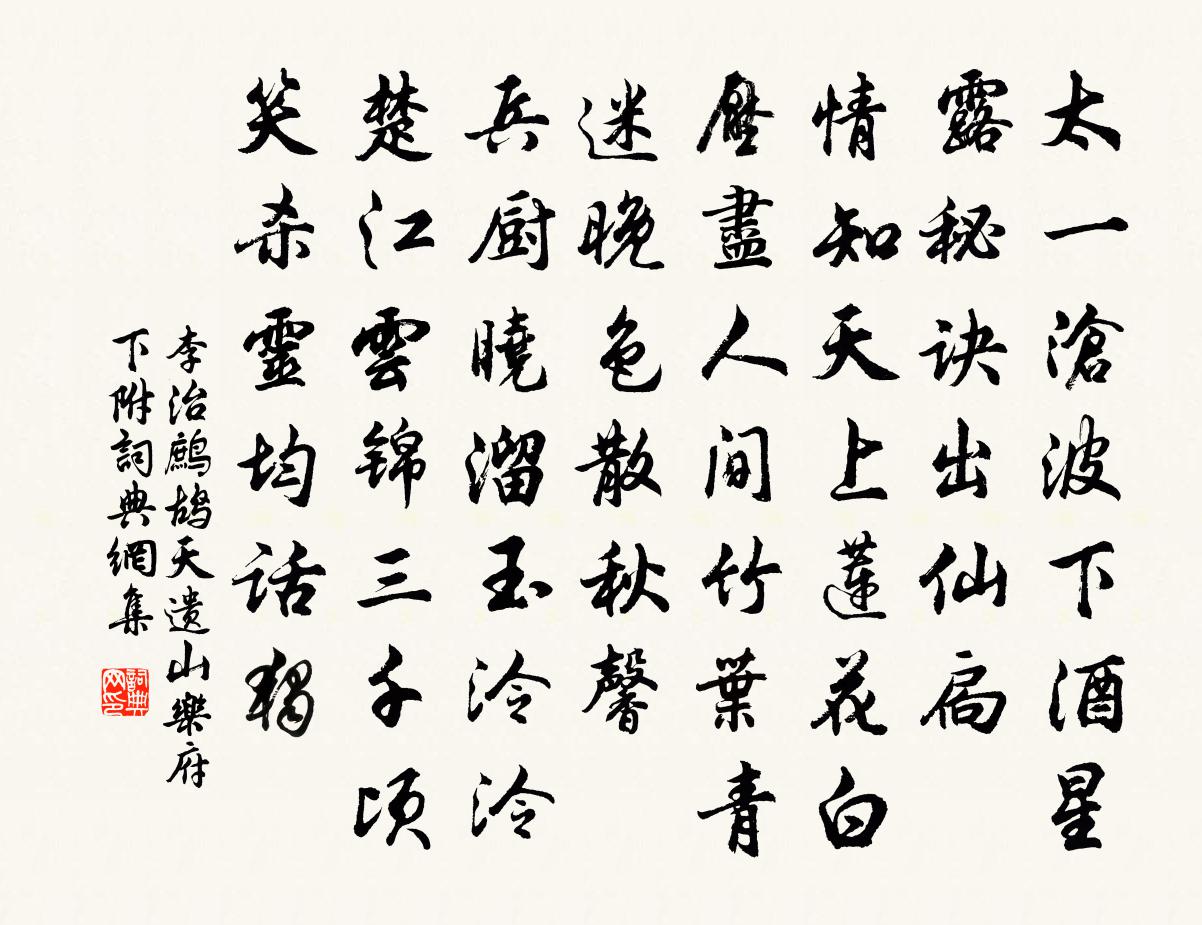 太一滄波下酒星
露秘诀出仙扃
情知天上蓮花白
壓盡人间竹葉青
迷晚色散秋馨
兵厨曉溜玉泠泠
楚江雲锦三千顷
笑杀靈均话獨
李治鷓鴣天遗山樂府
下附詞典網集
詞典网印